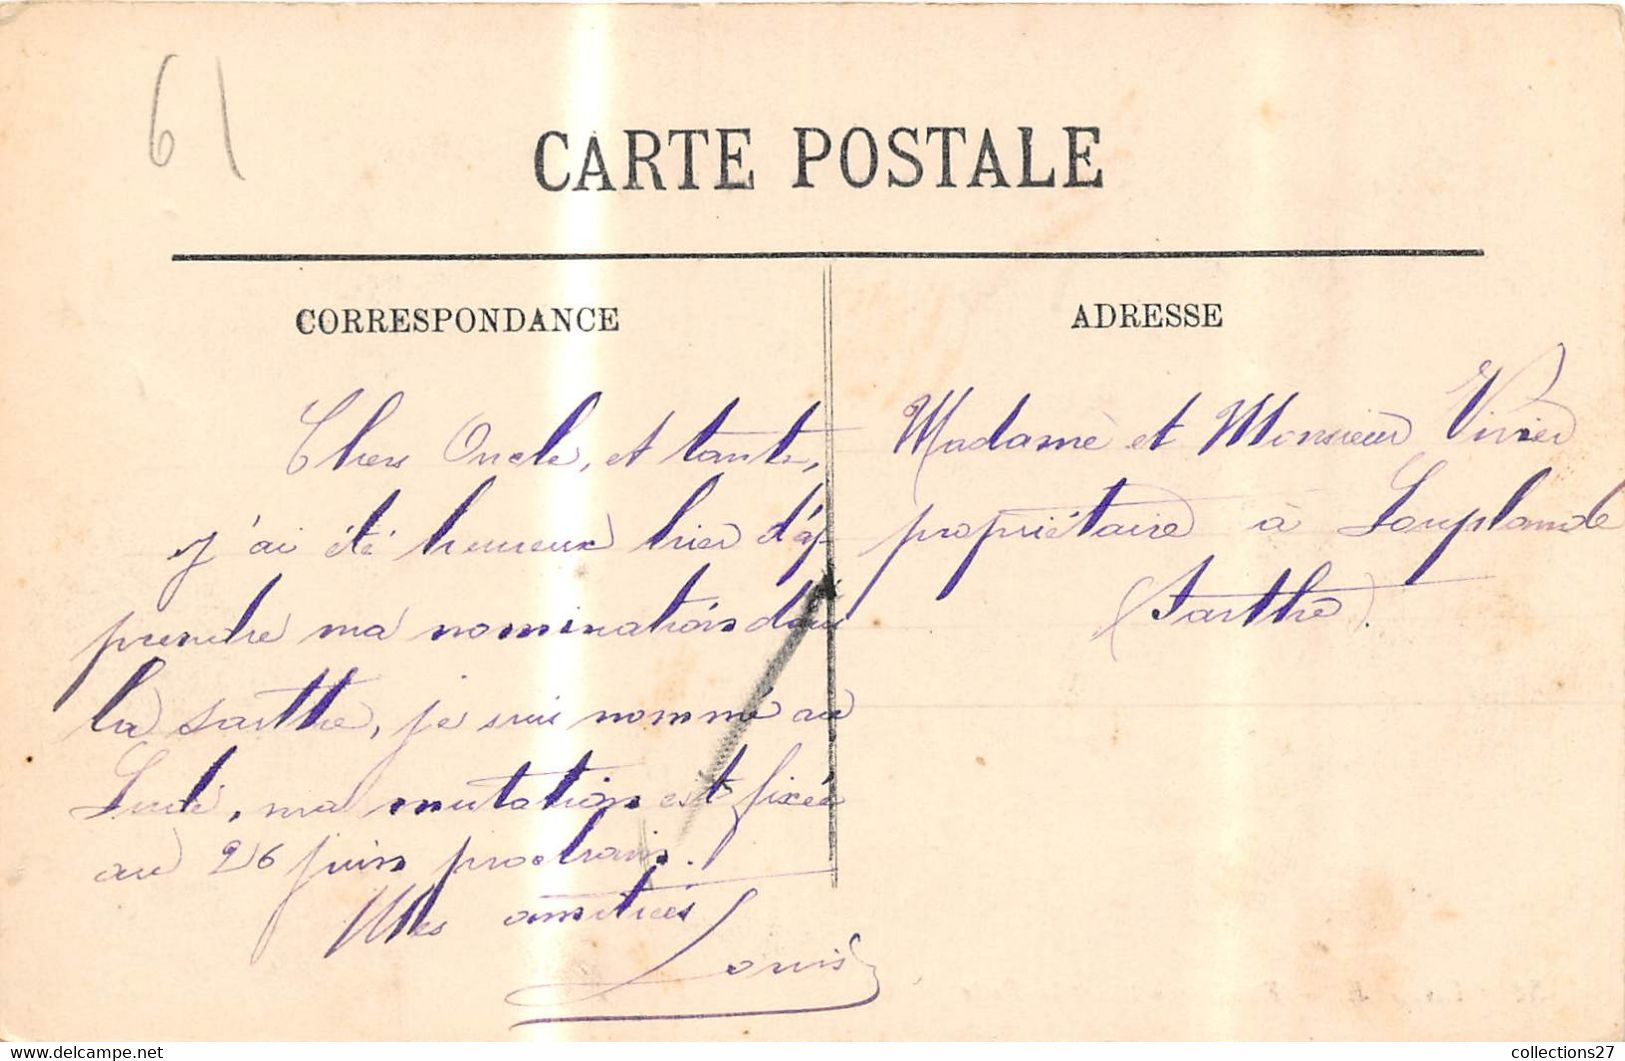 61
CARTE POSTALE
CORRESPONDANCE
Chers Oncle, et tante,
j'ai été heureux hier d'ap
prendre ma nomination dans
la sarthe, je suis nommé au
Lude, ma mutation est fixée
au 26 juin prochain.
Mes amitiés
Louis
ADRESSE
Madame et Monsieur Vivier
propriétaire à Louplande
(Sarthe).
collections27